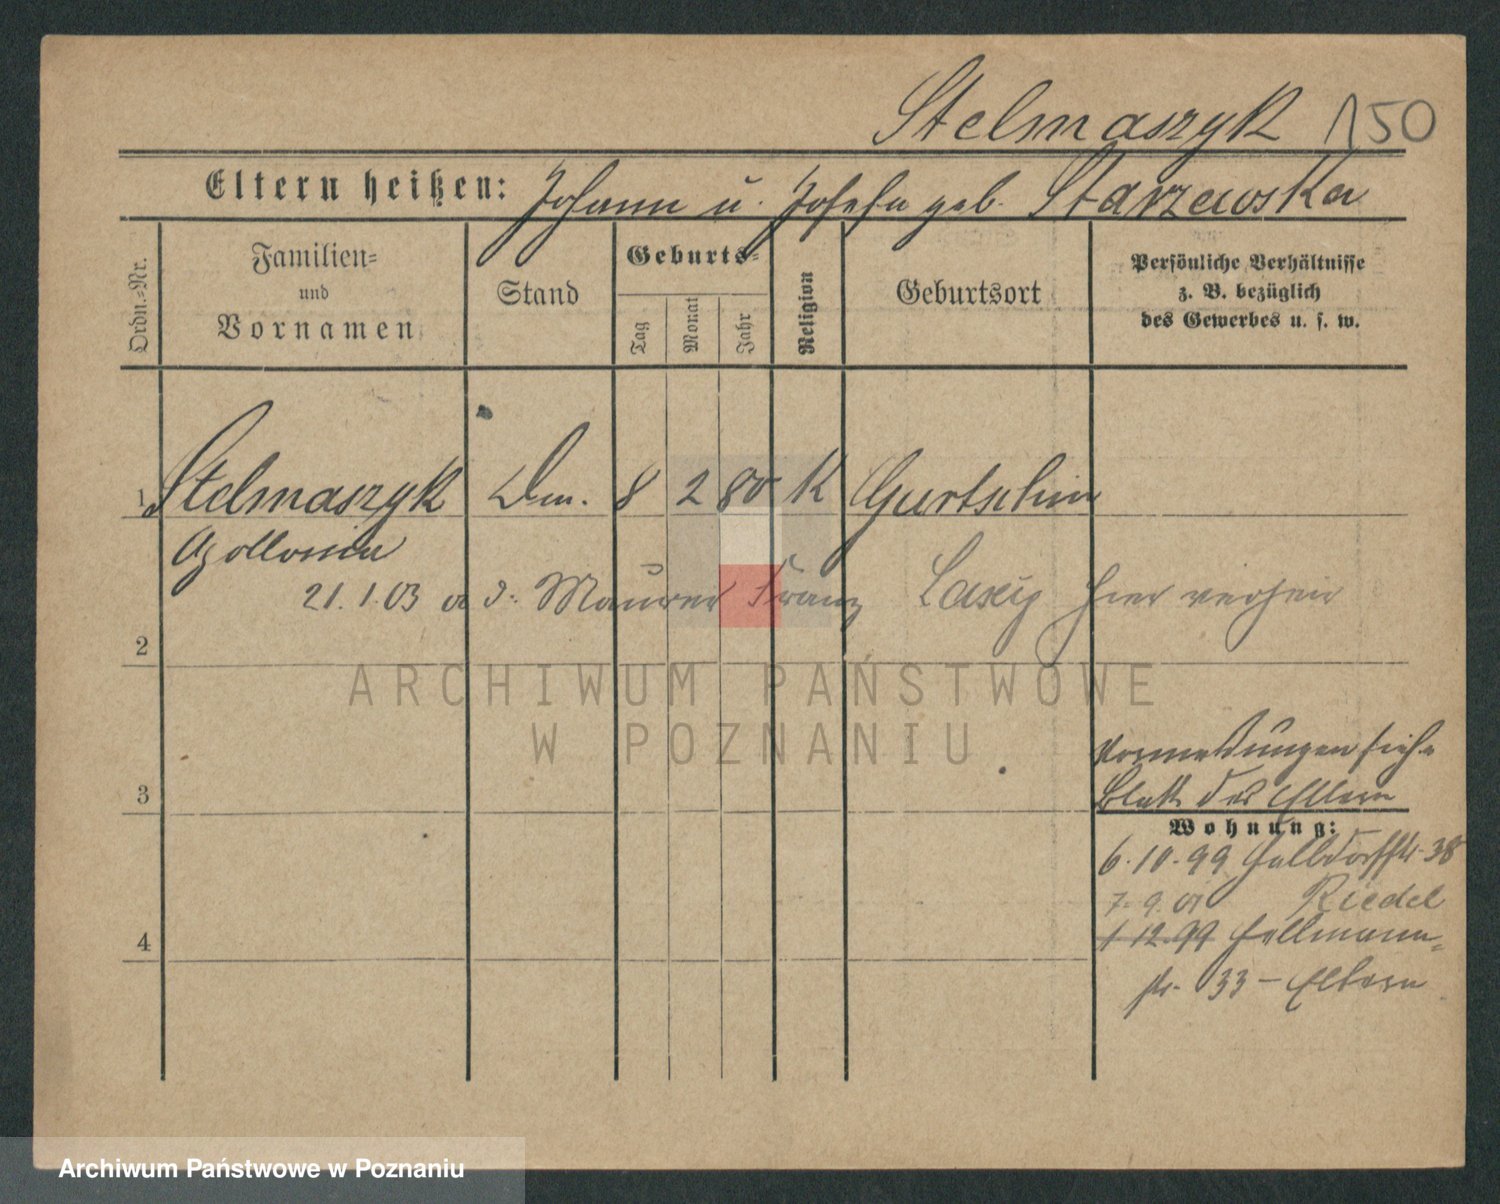 Stelmaszyk 150
Eltern heißen: Johann u. Josefa geb. Starzewska
Ordn.-Nr.
Familien-
und
Vornamen
Stand
Geburts-
Tag
Monat
Jahr
Religion
Geburtsort
Persönliche Verhältnisse
z. B. bezüglich
des Gewerbes u. s. w.
1 Stelmaszyk 8 2 80 K Gurtschin
Apollonia
21.1.03 Maurer Franz hier verheir
2
3
4
Vormeldungen siehe
Blatt der Eltern
Wohnung:
6.10.99 38
7.9.01 Riedel
1 12.99 Hellmann-
str. 33 - Eltern
ARCHIWUM PAŃSTWOWE
W POZNANIU
Archiwum Państwowe w Poznaniu